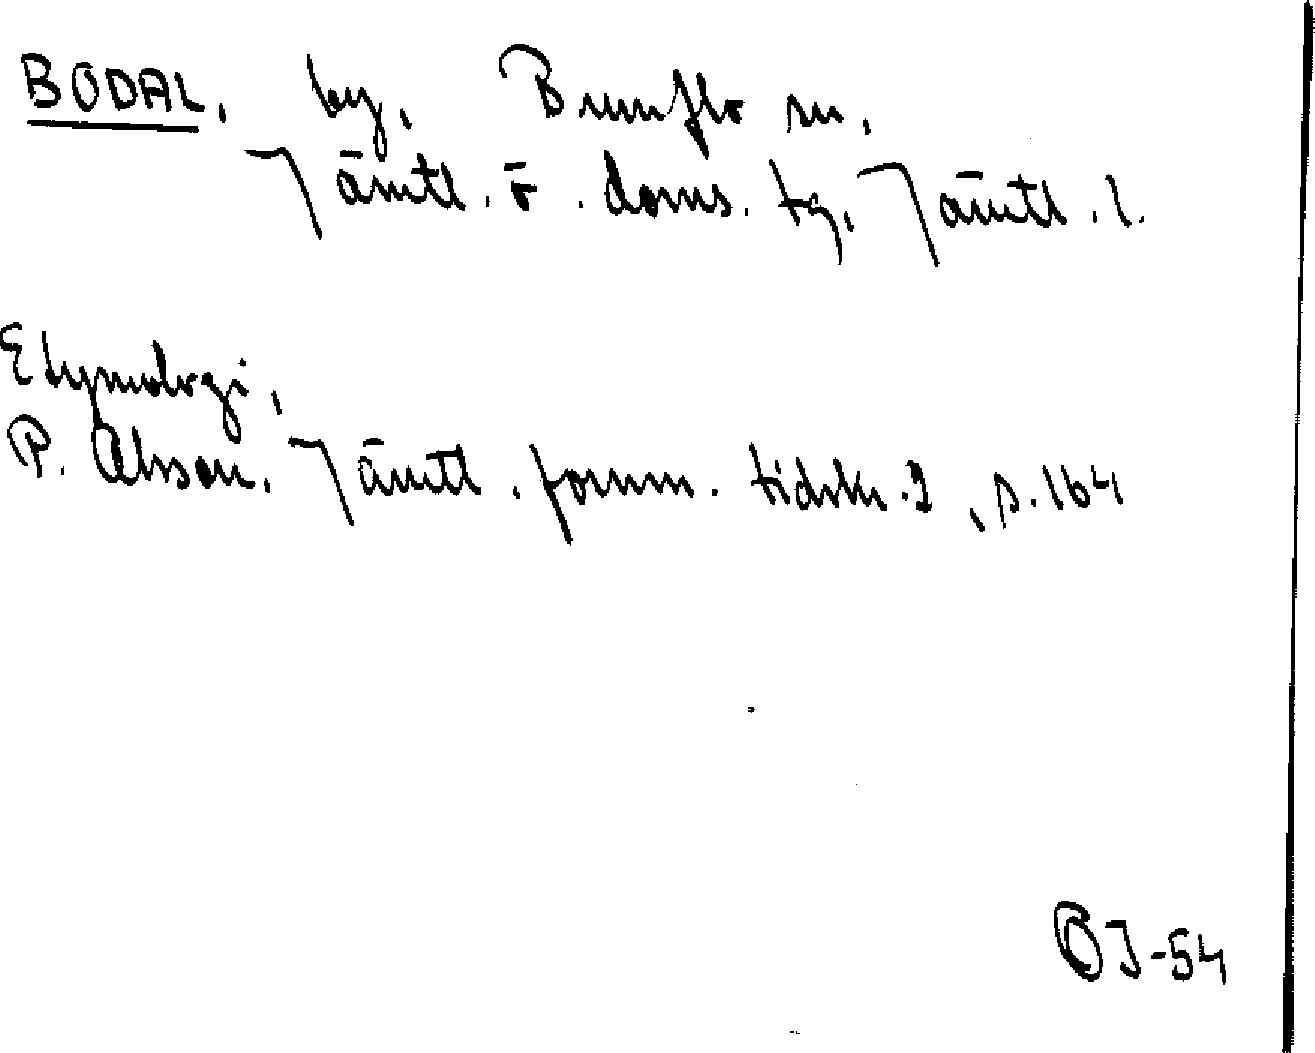 BODAL, by, Brunflo sn,
Jämtl. ö. doms. tg, Jämtl. l.
Etymologi,
P. Olsson, Jämtl. fornm. tidskr. 2, s. 164
OJ-54